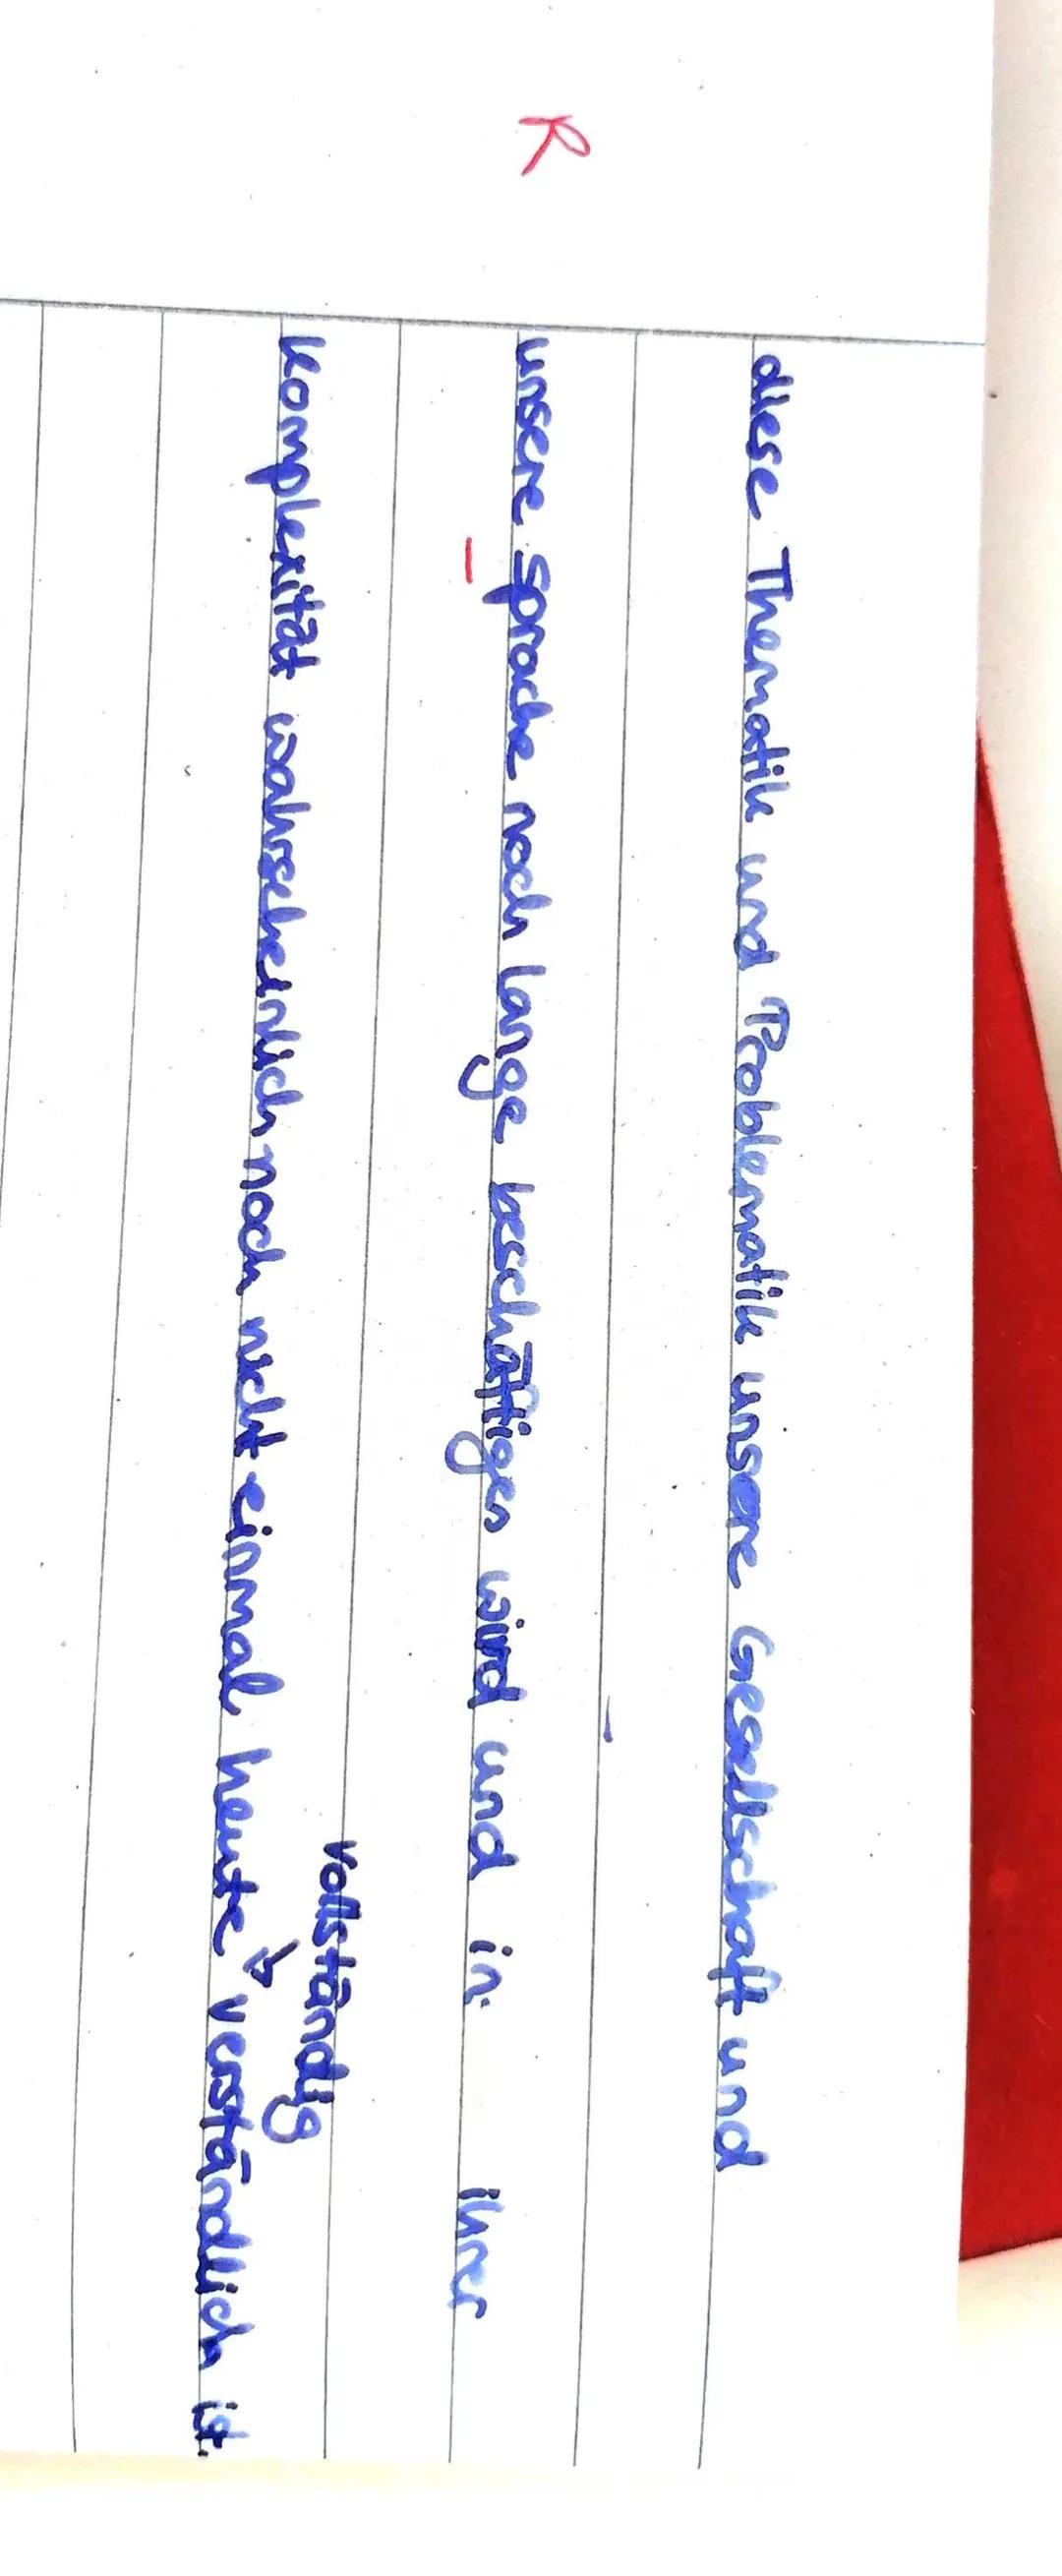 diese Thematik und Problematik unsere Gesellschaft und
R
unsere sprache noch lange beschäftigen wird und in ihrer
vollständig
Komplexität wahrscheinlich noch nicht einmal heute verständlich ist.